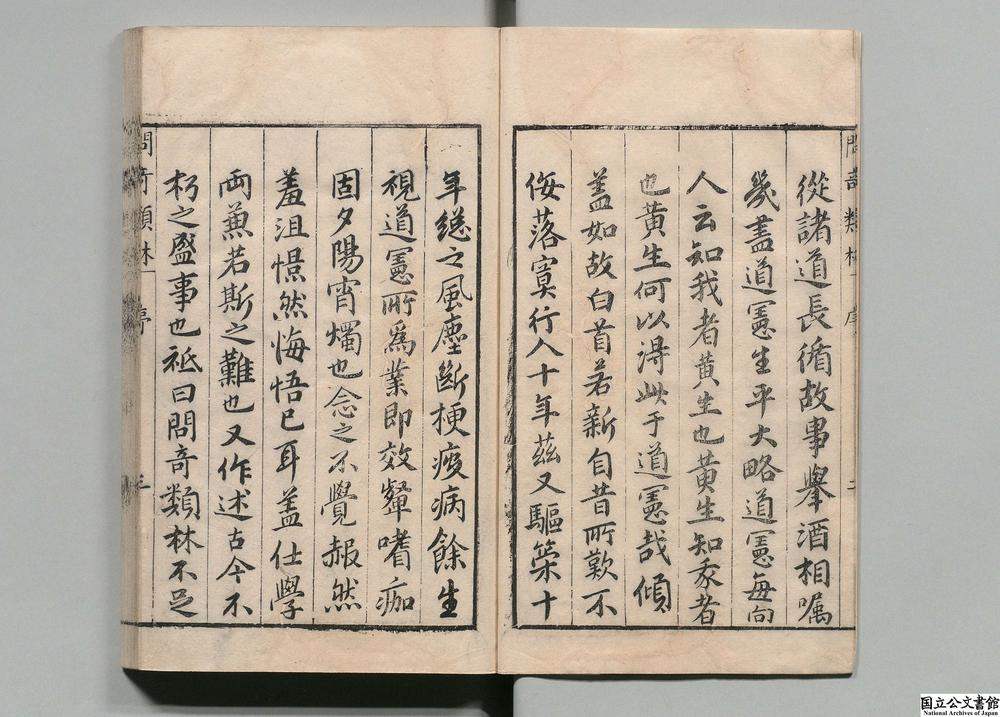 問奇類林
序
二
從諸道長循故事舉酒相囑
幾盡道憲生平大略道憲每向
人云知我者黃生也黃生知我者
也黃生何以淂此于道憲哉傾
蓋如故白首若新自昔所歎不
侫落寞行八十年茲又驅築十
年總之風塵斷梗疲病餘生
視道憲所為業即效顰嗜痂
固夕陽宵燭也念之不覺赧然
羞沮憬然悔悟已耳蓋仕學
兩兼若斯之難也又作述古今不
朽之盛事也祗曰問奇類林不足
問奇類林
序
三
国立公文書館
National Archives of Japan